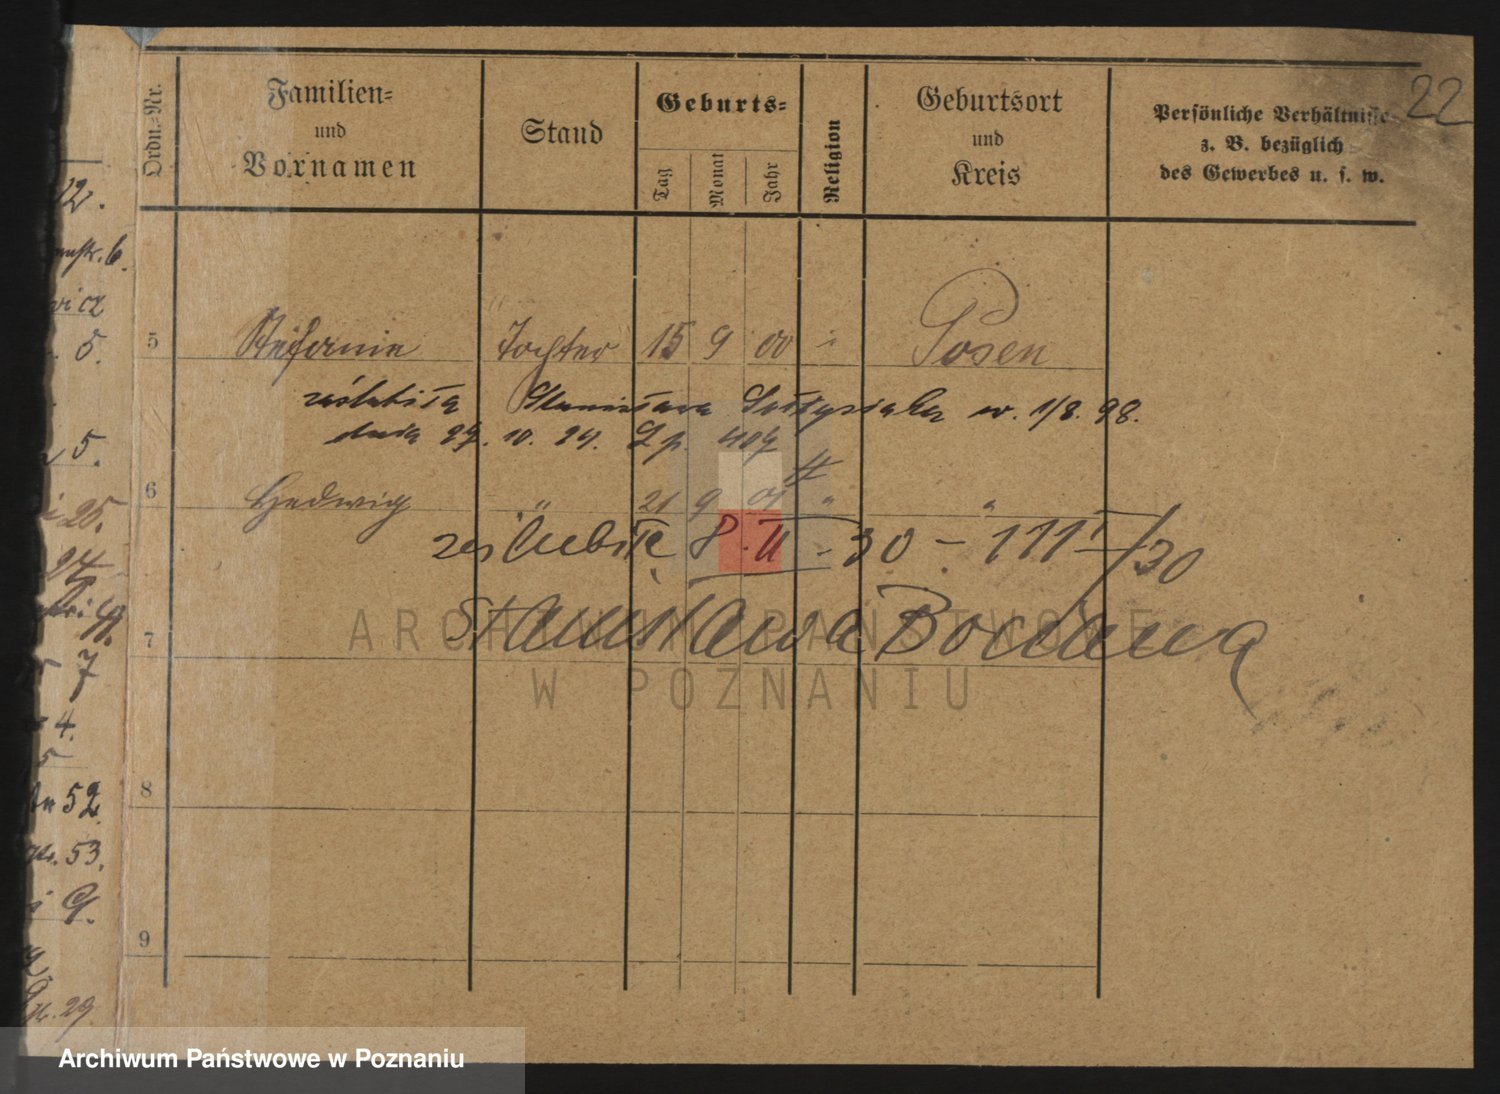 22
Ordn.-Nr.
Familien-
und
Vornamen
Stand
Geburts-
Tag
Monat
Jahr
Religion
Geburtsort
und
Kreis
Persönliche Verhältnisse
z. B. bezüglich
des Gewerbes u. s. w.
12.
6.
5.
5.
25.
7
4.
5
52
53.
9.
29
5 Stefanie Tochter 15 9 00 " Posen
zaślubiła Stanisława w. 1/8. 98.
dnia 27. 10. 24. L p. 407
6 Hedwig " 21 9 01 " "
zaślubiła 8. II. 30 – 111/30
Stanisława Bociana
7
8
9
ARCHIWUM PAŃSTWOWE
W POZNANIU
Archiwum Państwowe w Poznaniu